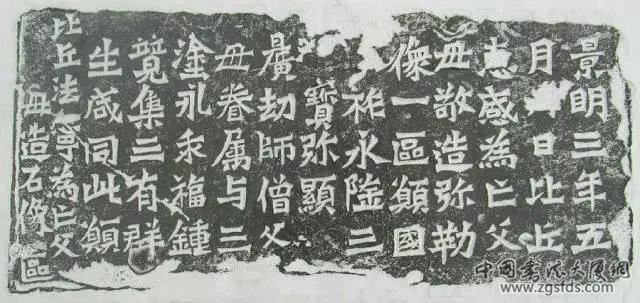 景明三年五
月日比丘
惠感為亡父
母敬造弥勒
像一區願國
祚永隆三
寶弥顯
曠劫師僧父
母眷属与三
塗永乖福鍾
竟集三有群
生咸同此願
比丘法寧為亡父
母造石像區
中国书法大厦网
www.zgsfds.com